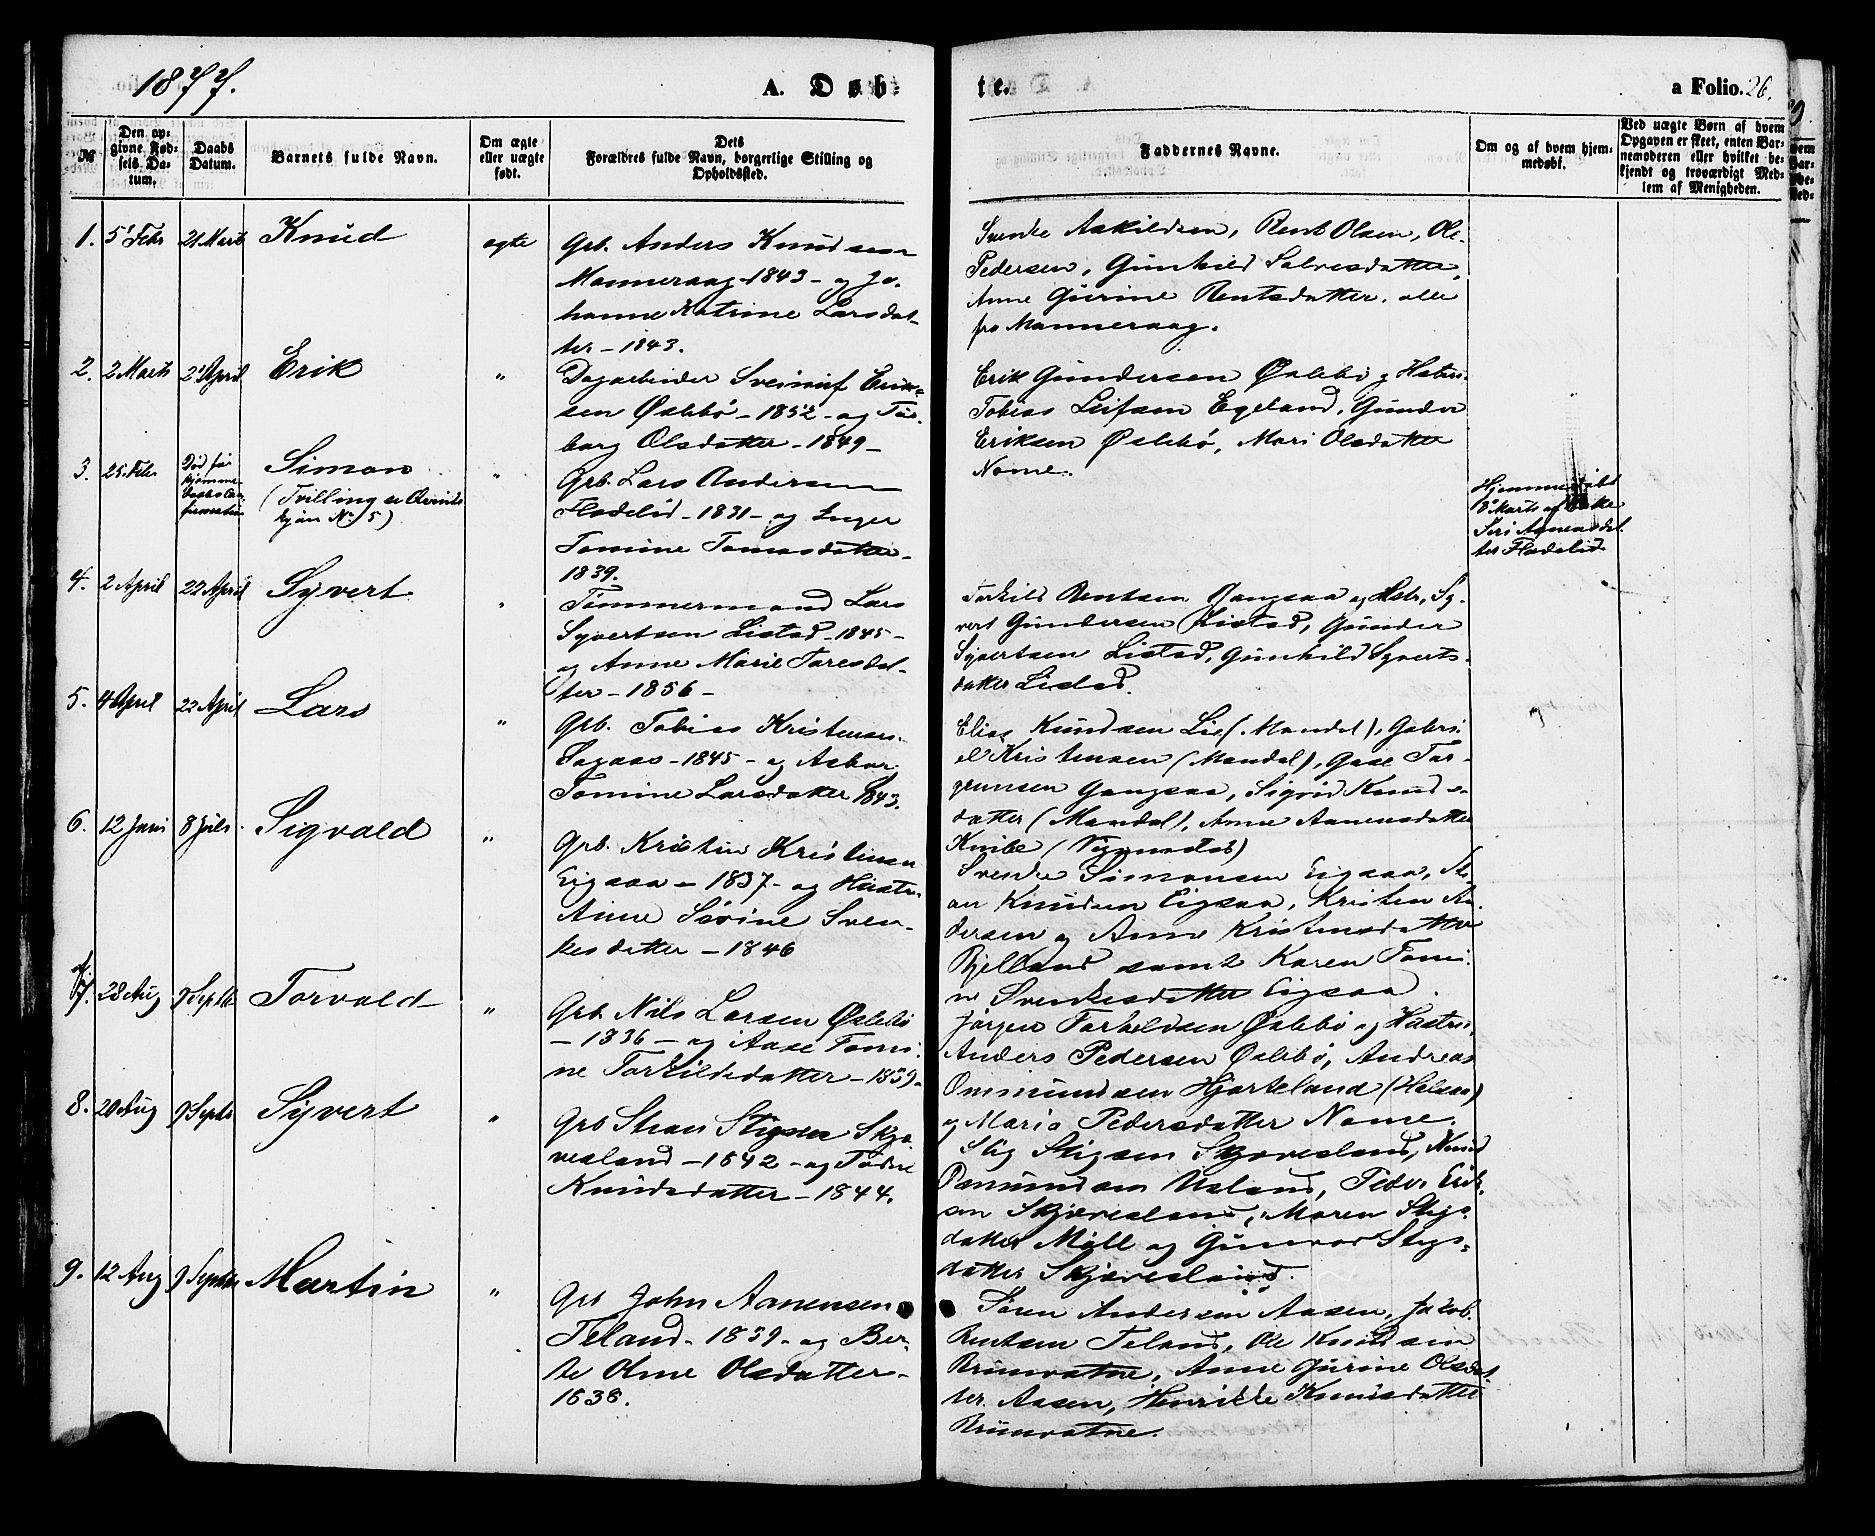 1877.
A. Døb-
te.
a Folio. 26.
№
Den op-
givne Fød-
sels Da-
tum.
Daabs
Datum.
Barnets fulde Navn.
Om ægte
eller uægte
født.
Dets
Forældres fulde Navn, borgerlige Stilling og
Opholdssted.
Faddernes Navne.
Om og af hvem hjem-
medøbt.
Ved uægte Børn af hvem
Opgaven er skeet, enten Bar-
nemoderen eller hvilket be-
kjendt og troværdigt Med-
lem af Menigheden.
1. 5 Febr 21 Marts Knud ægte
Grb. Anders Knudsen
Manneraag 1843 - og Jo-
hanne Katrine Larsdat-
ter - 1843.
Svenke Askildsen, Bent Olsen, Ole
Pedersen, Gunhild Salvesdatter,
Anne Gurine Bentsdatter, alle
fra Manneraag.
2. 2 Marts 2 April Erik "
Dagarbeider Sveinulf Erik-
sen Øslebø - 1852 - og Tor-
borg Olsdatter - 1849 -
Erik Gundersen Øslebø og Hustru
Tobias Leifsen Egeland, Gunder
Eriksen Øslebø, Mari Olsdatter
Nome.
3. 25 Febr
Død før
Simon "
(Tvilling
kjøn No 5)
Grb. Lars Andersen
Fladelid - 1831 - og Inger
Tomine Tomasdatter -
1839.
Hjemmedøbt
8 Marts af
Seri Aanensdat
ter Fladelid
4. 2 April 22 April Syvert "
Tømmermand Lars
Syvertsen Listad - 1845 -
og Anne Marie Taresdat-
ter - 1856 -
Torkild Bentsen Gangsaa og Hstr, Sy-
vert Gundersen Listad, Gunder
Syvertsen Listad, Gunhild Syverts-
datter Listad.
5. 4 April 22 April Lars "
Grb. Tobias Kristensen
1845 - og Asbor
Tomine Larsdatter 1843.
Elias Knudsen Lie (Mandal), Gabri-
el Kristensen (Mandal), Gase Tor-
grimsen Gangsaa, Sigrid Knuds-
datter (Mandal), Anne Aanensdatter
6. 12 Juni 8 Juli Sigvald "
Grb. Kristen Kristensen
Eigsaa - 1837 - og Hustru
Anne Sørine Sven-
kesdatter - 1846
Svenke Simonsen Eigsaa,
Knudsen Eigsaa, Kristen An-
dersen og Anne Kristensdatter
Bjelland samt Karen Tomi-
ne Svenkesdatter Eigsaa.
7. 28 Aug 9 Septbr Torvald "
Grb. Nils Larsen Øslebø
- 1836 - og Aase Tomi-
ne Torkildsdatter - 1839 -
Jørgen Torkildsen Øslebø og Hustru,
Anders Pedersen Øslebø, Andreas
Ommundsen Hjorteland (Halsaa)
og Maria Pedersdatter Nome.
8. 20 Aug 9 Septbr Syvert "
Grb Stian Stigsen Skjæ-
vesland - 1842 - og Todne
Knudsdatter - 1844.
Stig Stigsen Skjævesland, Knud
Omundsen Usland, Peder Erik-
sen Skjævesland, Maren Stigs-
datter Møll og Gunvor Stigs-
datter Skjævesland.
9. 12 Aug 9 Septbr Martin "
Grb John Aanensen
Feland - 1839 - og Ber-
te Olene Olsdatter -
1838.
Søren Andersen Aasen, Jakob
Bentsen Feland, Ole Knudsen
Brunvatne, Anne Gurine Olsdat-
ter Aasen, Henrikke Knudsdatter
Brunvatne.